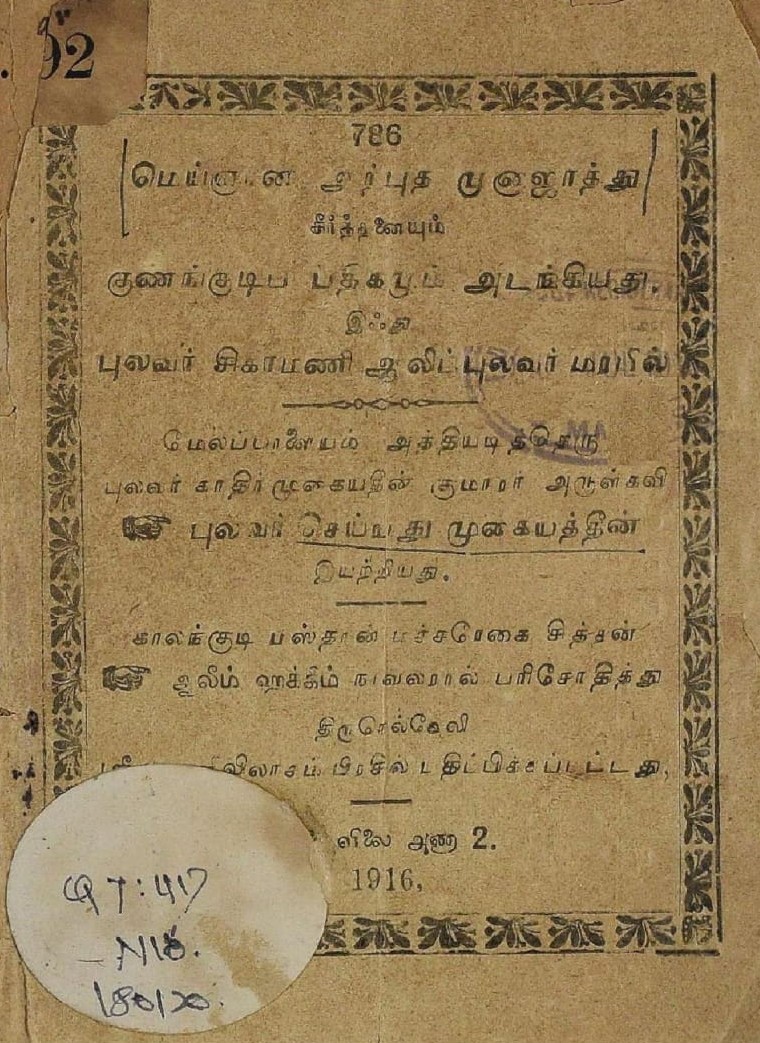 92
786
மெய்ஞான அற்புத முனாஜாத்து
கீர்த்தனையும்
குணங்குடிப் பதிகமும் அடங்கியது.
இஃது
புலவர் சிகாமணி ஆலிப்புலவர் மரபில்
மேலப்பாளையம் அத்தியடித்தெரு
புலவர் காதிர்முகையதீன் குமாரர் அருள்கவி
புலவர் செய்யது முகையத்தீன்
இயற்றியது.
காலங்குடி மச்சரேகை சித்தன்
ஆலிம் ஹக்கிம் நாவலரால் பரிசோதித்து
திருநெல்வேலி
பிரசில் பதிப்பிக்கப்பட்டது,
விலை அணா 2.
1916,
Q7:417
N16.
180120.